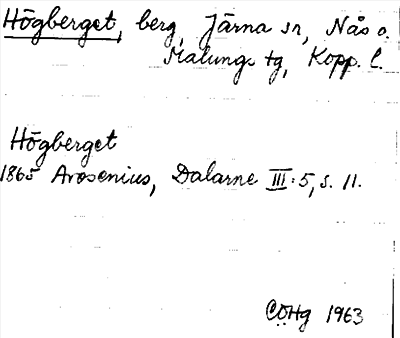 Högberget, berg, Järna sn, Nås o.
Malungs tg, Kopp. l.
Högberget
1865 Arosenius, Dalarne III:5, s. 11.
CÖHg 1963